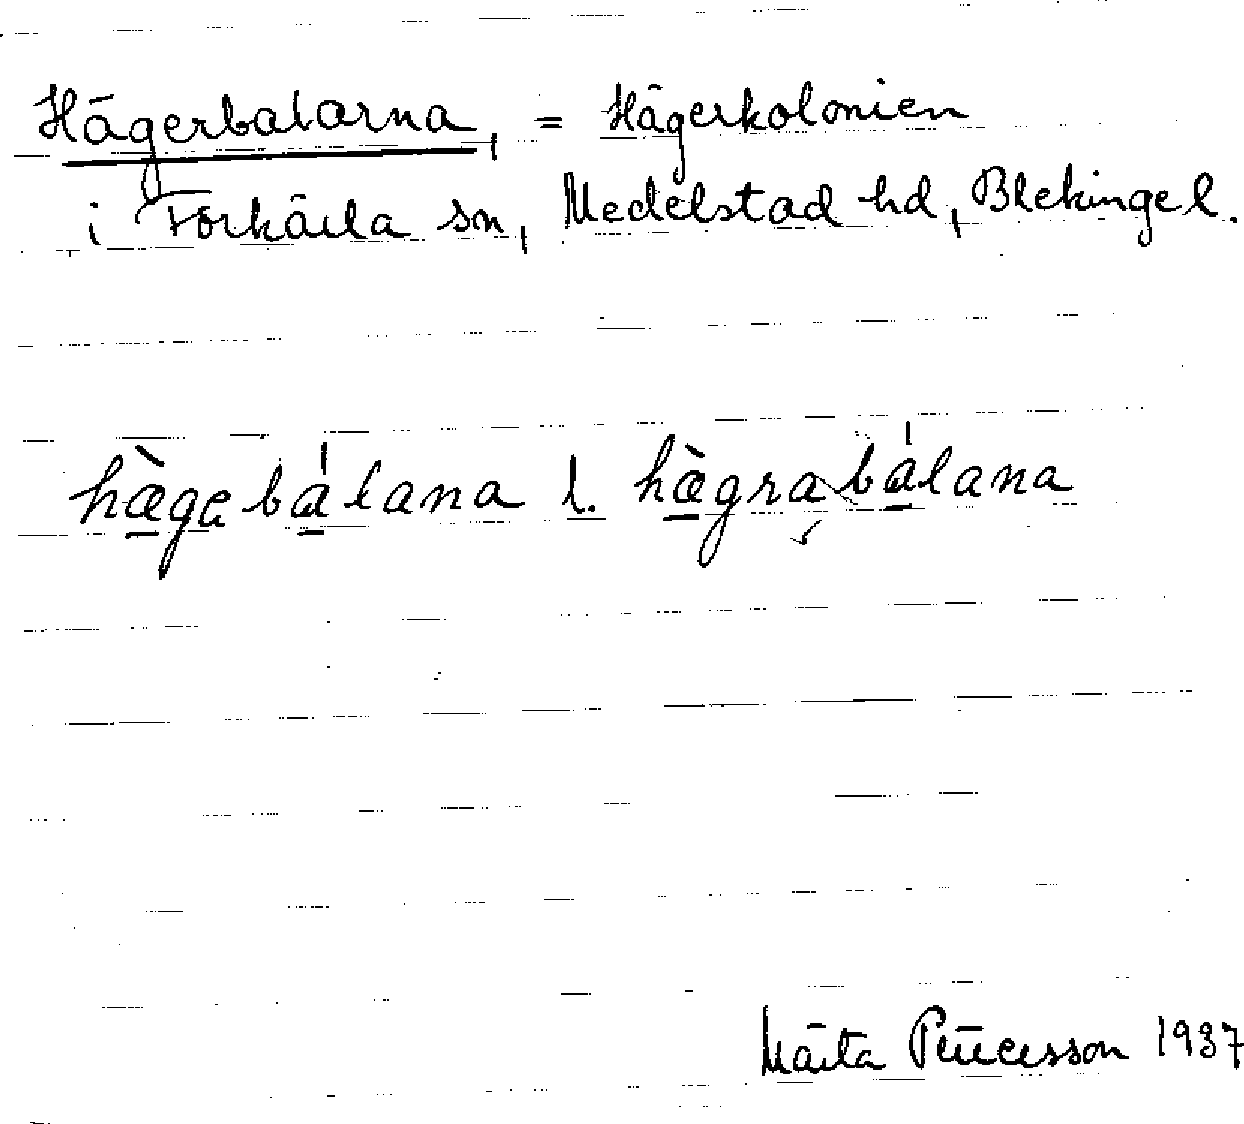 Hägerbalarna, = Hägerkolonien
i Förkärla sn, Medelstad hd, Blekinge l.
hæ̀gebálana l. hæ̀grabálana
Märta 1937